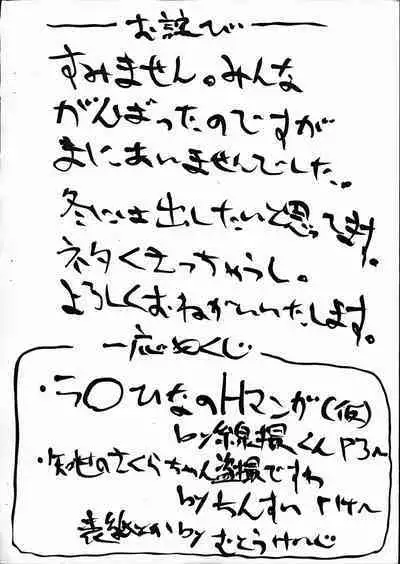 お詫び
すみません。みんな
がんばったのですが
まにあいませんでした。
冬には出したいと思ってます。
ネタくさっちゃうし。
よろしくおねがいいたします。
一応もくじ
・ラ〇ひなのHマンガ(仮)
by 線撮くん P3〜
のさくらちゃん盗撮ですわ
by ちんすい P14〜
表紙とか by むとうけーじ